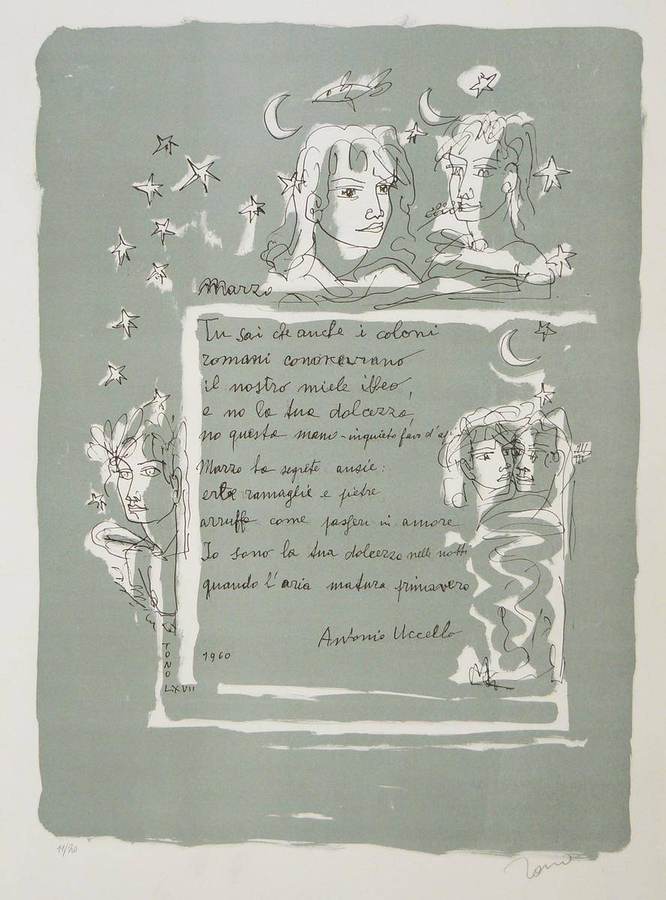 Marzo
Tu sai che anche i coloni
romani conoscevano
il nostro miele ibleo,
e no la tua dolcezza,
no questa mano - inquieto favo d'a
Marzo ha segrete ansie:
erbe ramaglie e pietre
arruffa come passeri in amore
Io sono la tua dolcezza nelle notti
quando l'aria matura primavera
Antonio Uccello
1960
TONO
LXVII
11/70
Tono